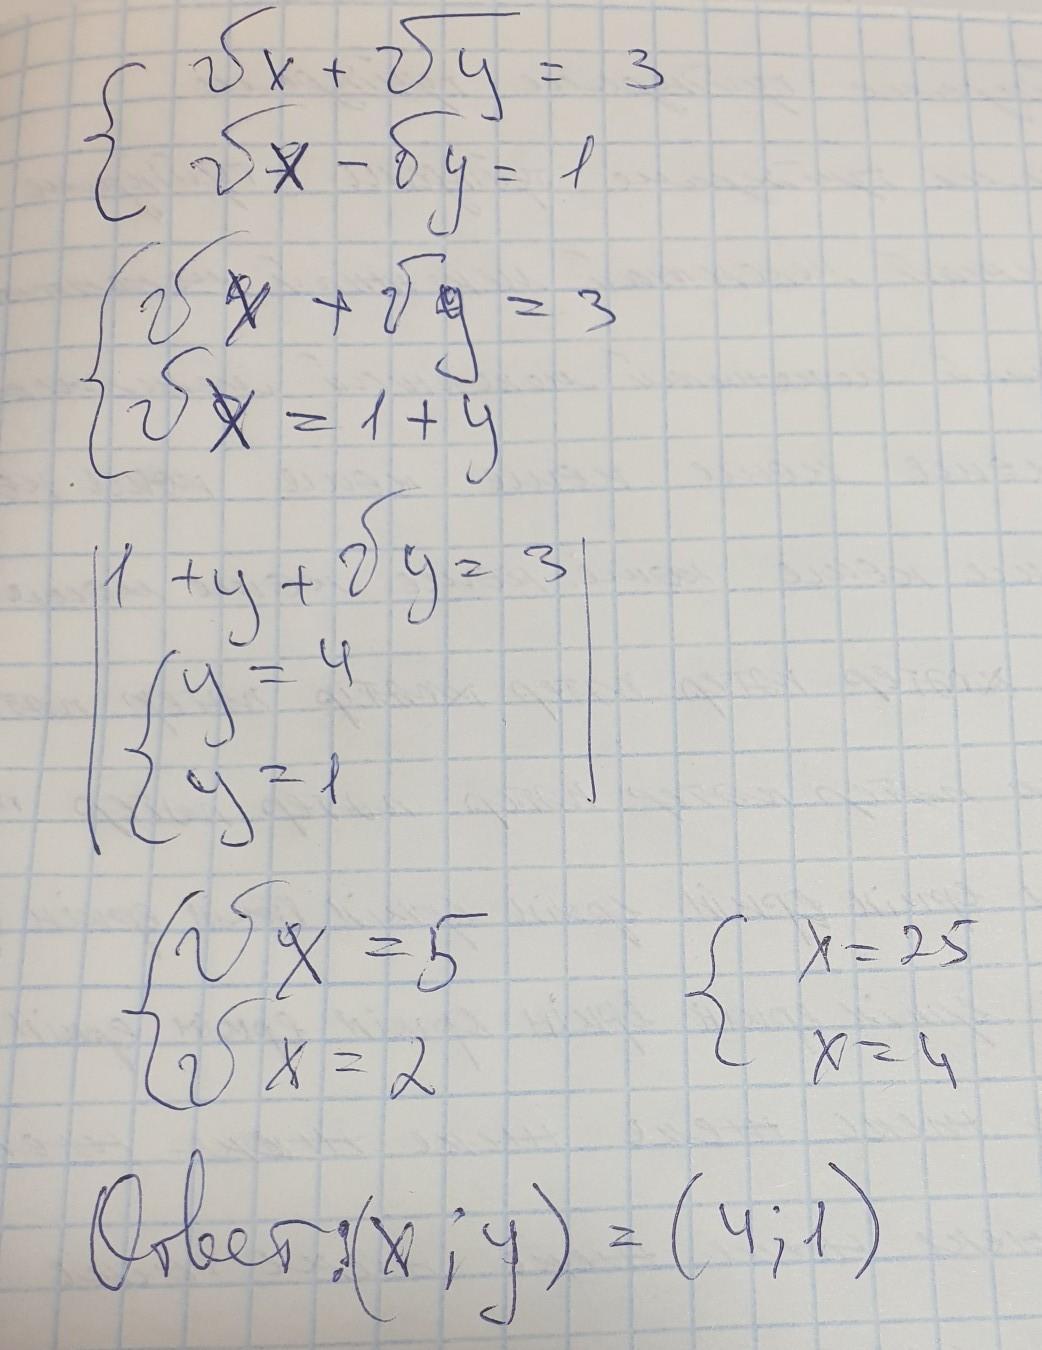 { √x + √y = 3
√x - √y = 1
{ √x + √y = 3
√x = 1 + y
| 1 + y + √y = 3 |
{ y = 4
y = 1
{ √x = 5 { x = 25
√x = 2 x = 4
Ответ: (x; y) = (4; 1)